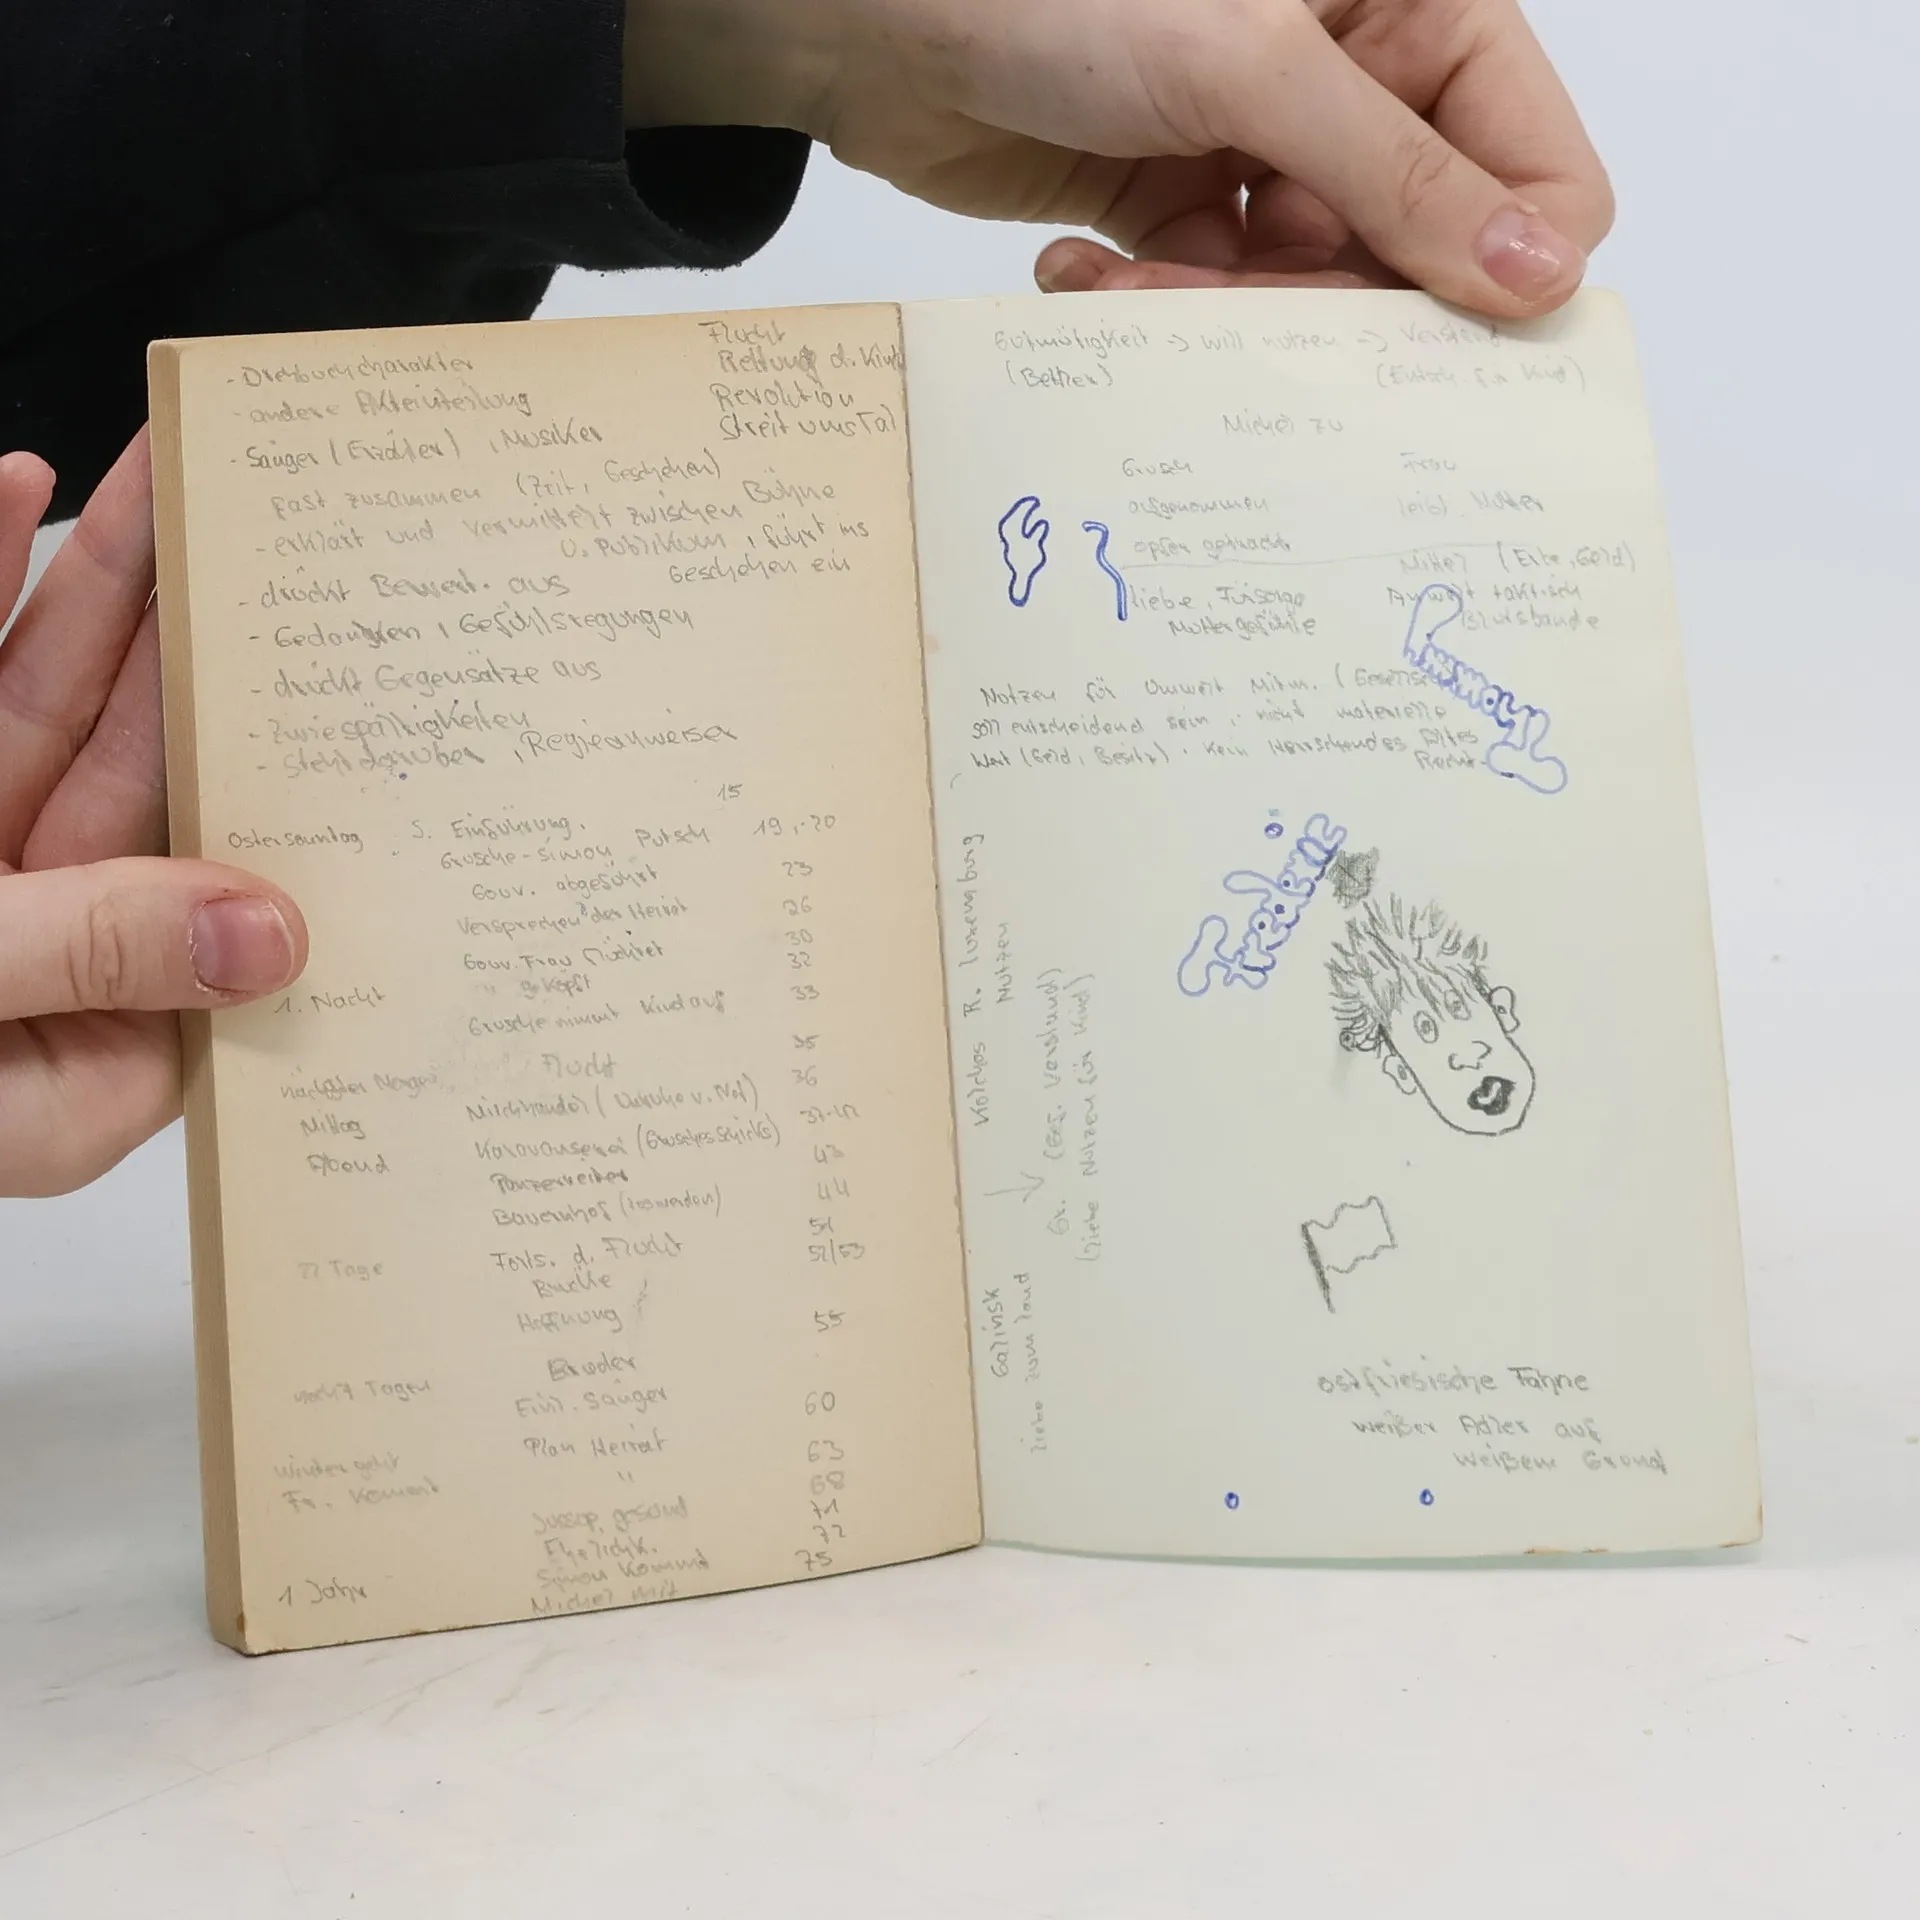 - Drehbuchcharakter
- andere Akteinteilung
- Sänger (Erzähler), Musiker
fast zusammen (Zeit, Geschehen)
- erklärt und vermittelt zwischen Bühne
u. Publikum, führt ins
Geschehen ein
- drückt Bewert. aus
- Gedanken, Gefühlsregungen
- drückt Gegensätze aus
- Zwiespältigkeiten
- steht darüber, Regieanweiser
Flucht
Rettung d. Kind
Revolution
Streit ums Tal
15
Ostersonntag S. Einführung.
Grusche-Simon Putsch 19,-20
Gouv. abgeführt 23
Versprechen der Heirat 26
Gouv. Frau flüchtet 30
" geköpft 32
1. Nacht Grusche nimmt Kind auf 33
Flucht 35
nächster Morgen 36
Mittag Milchhandel (
Abend Karavanserei ( 43
Panzerreiter 44
Bauernhof ( 51
22 Tage Forts. d. Flucht 52/53
Brücke
Hoffnung 55
Bruder
nach 7 Tagen Einl. Sänger 60
Plan Heirat 63
Winter geht " 68
Jussup, gesund 71
72
Simon kommt 75
1 Jahr Michel mit
Gutmütigkeit -> will nutzen -> Verstand
(Bettler) (Entsch. für Kind)
Michel zu
Grusch Frau
aufgenommen leibl. Mutter
opfer gebracht Mittel (Erbe, Geld)
liebe, Fürsorge Anwalt taktisch
Muttergefühle
Nutzen für Umwelt Mitm. (
soll entscheidend sein, nicht materielle
Wert (Geld, Besitz). Kein Herrschendes
Recht
Kolchos R. Luxemburg
Nutzen
Gr. (Bes. Verstand)
(liebe Nutzen für Kind)
Galinsk
liebe zum Land
ostfriesische Fahne
weißer Adler auf
weißem Grund